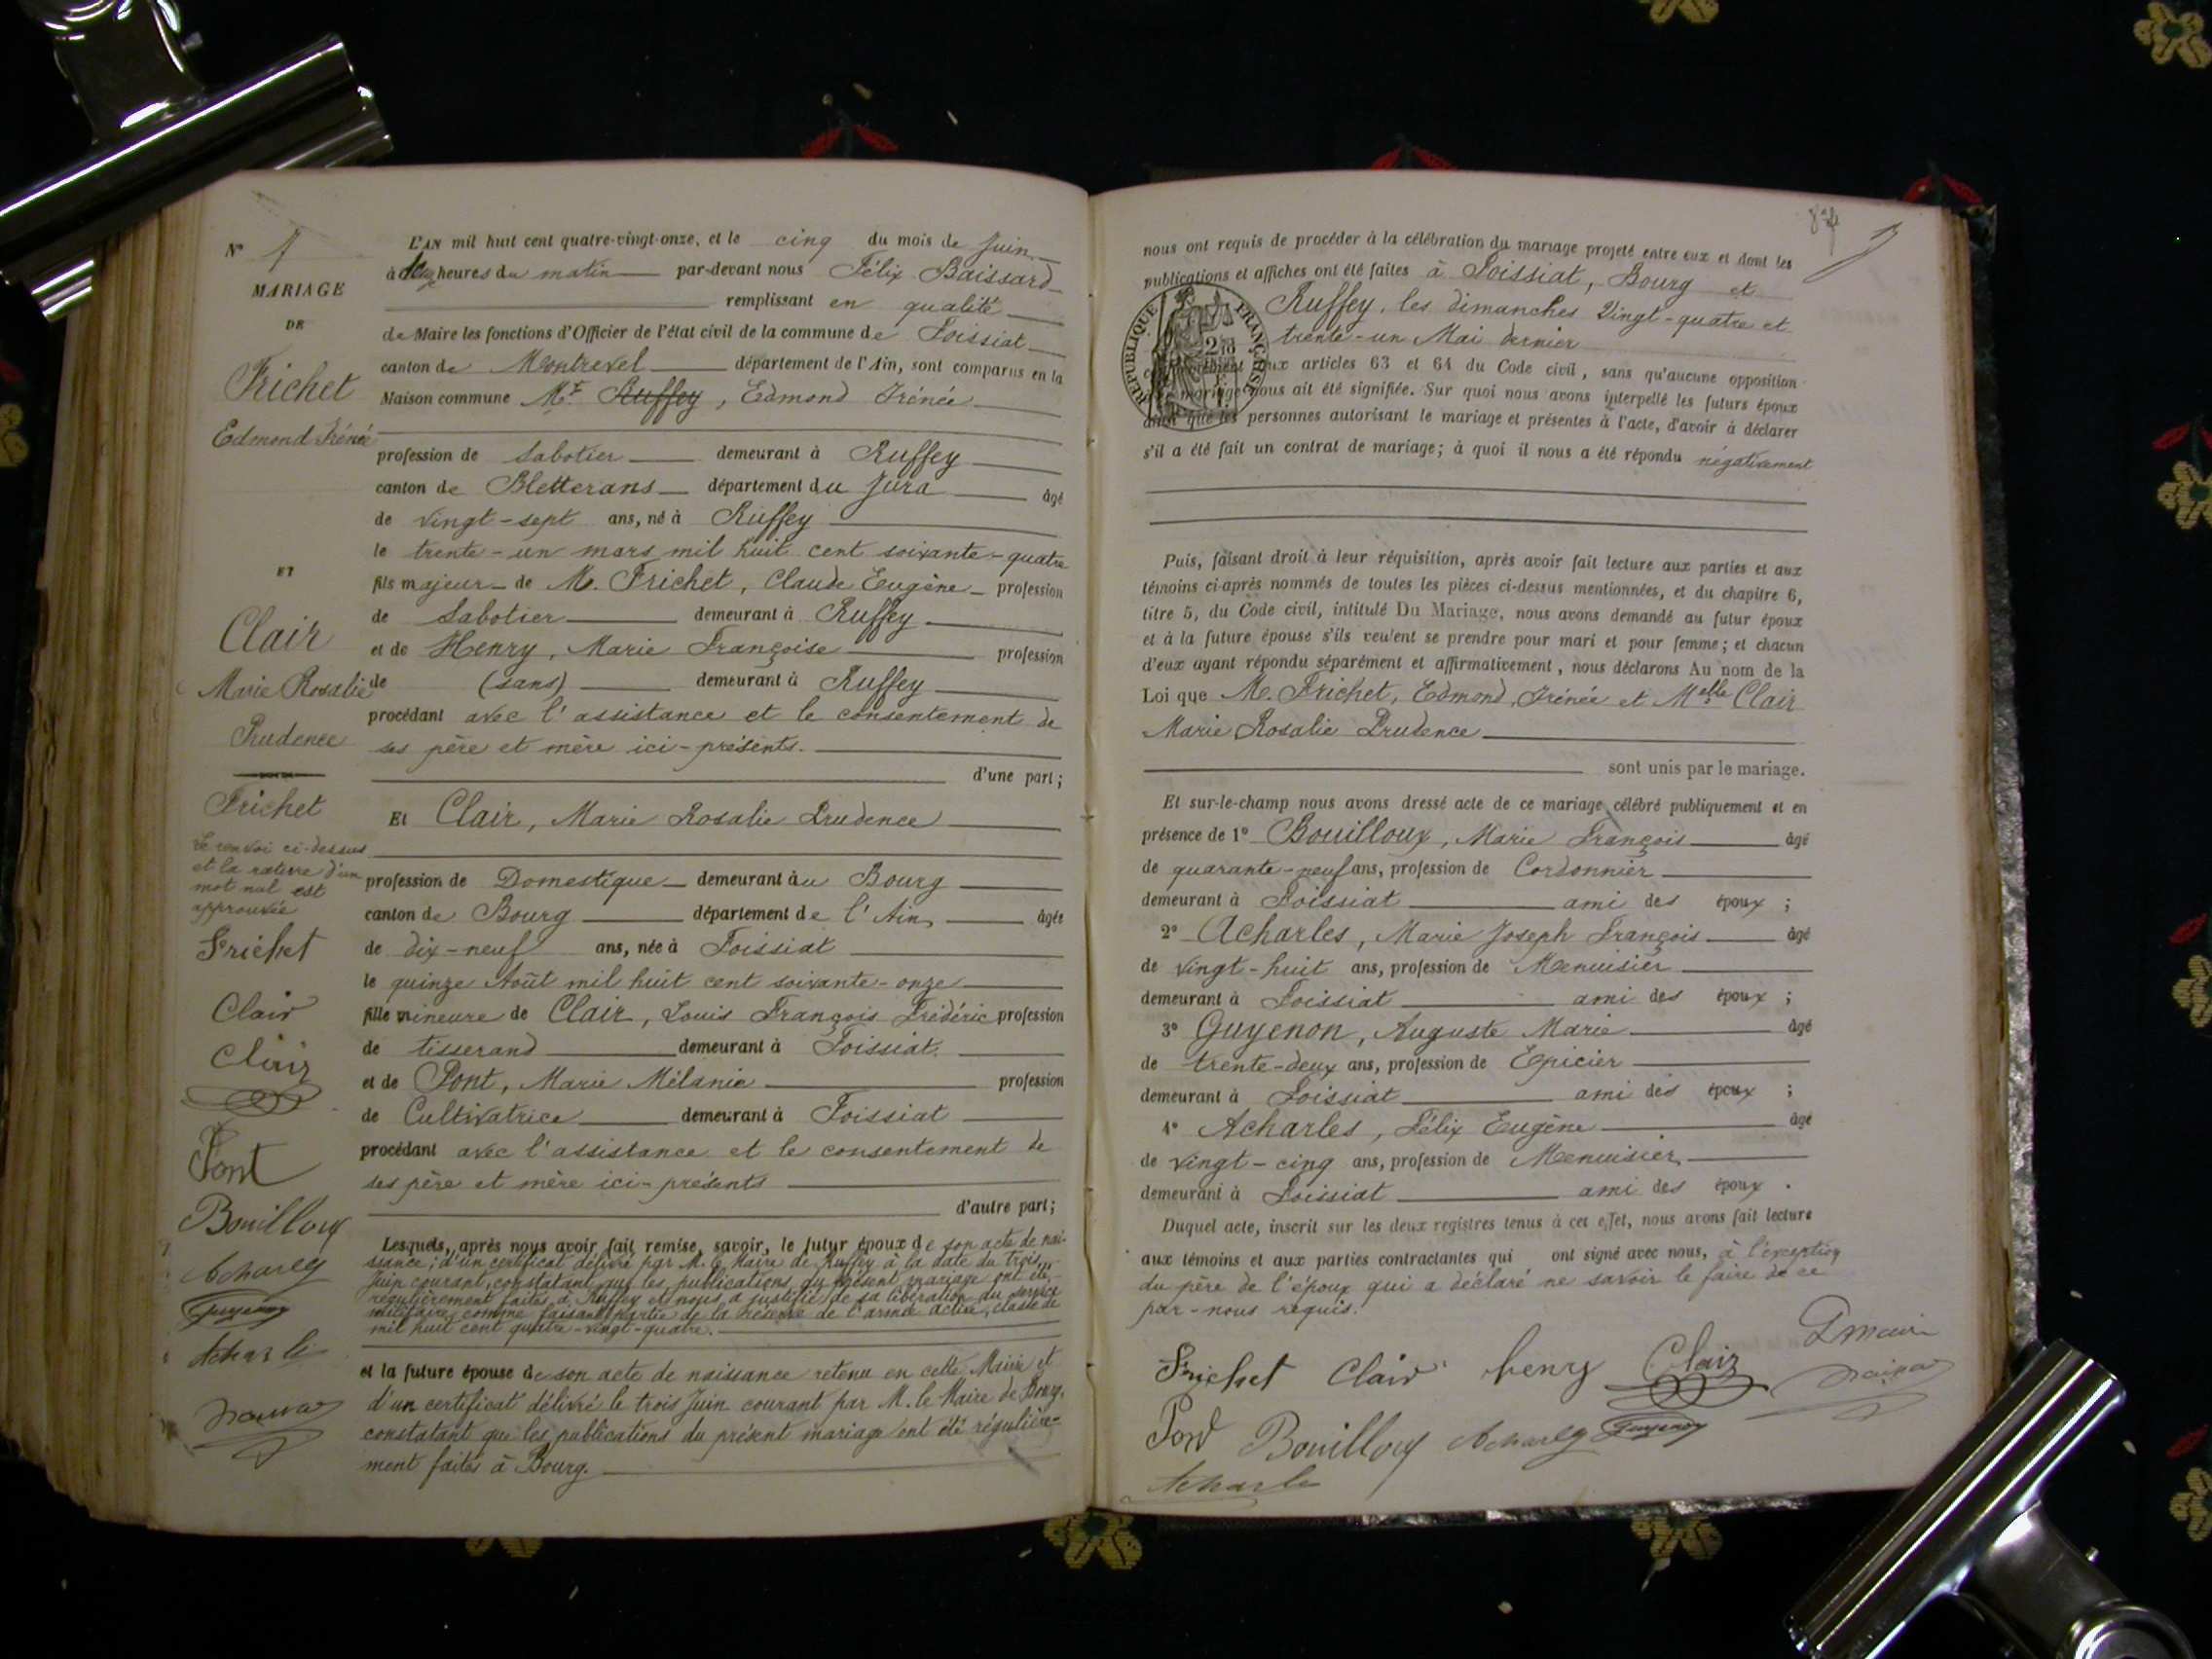 N° 7
MARIAGE
DE
Frichet
Edmond Irénée
ET
Clair
Marie Rosalie
Prudence
Frichet
Le renvoi ci-dessus
et la rature d'un
mot nul est
approuvée
Frichet
Clair
Clair
Pont
Bouilloux
Acharles
Guyenon
Acharle
L'AN mil huit cent quatre-vingt-onze, et le cinq du mois de Juin
à heures du matin par-devant nous Félix Baissard
remplissant en qualité
de Maire les fonctions d'Officier de l'état civil de la commune de Foissiat
canton de Montrevel département de l'Ain, sont comparus en la
Maison commune Mr Ruffey, Edmond Irénée
profession de Sabotier demeurant à Ruffey
canton de Bletterans département du Jura âgé
de vingt-sept ans, né à Ruffey
le trente-un mars mil huit cent soixante-quatre
fils majeur de M. Frichet, Claude Eugène profession
de Sabotier demeurant à Ruffey
et de Henry, Marie Françoise profession
de (sans) demeurant à Ruffey
procédant avec l'assistance et le consentement de
ses père et mère ici-présents.
d'une part;
Et Clair, Marie Rosalie Prudence
profession de Domestique demeurant à Bourg
canton de Bourg département de l'Ain, âgée
de dix-neuf ans, née à Foissiat
le quinze Août mil huit cent soixante-onze
fille mineure de Clair, Louis François Frédéric profession
de tisserand demeurant à Foissiat.
et de Pont, Marie Mélanie profession
de Cultivatrice demeurant à Foissiat
procédant avec l'assistance et le consentement de
ses père et mère ici-présents
d'autre part;
Lesquels, après nous avoir fait remise, savoir, le futur époux de son acte de nais-
sance; d'un certificat délivré par M. le Maire de Ruffey à la date du trois
Juin courant, constatant que les publications du présent mariage ont été
régulièrement faites à Ruffey et nous a justifié de sa libération du service
militaire, comme faisant partie de la réserve de l'armée active, classe de
mil huit cent quatre-vingt-quatre.
et la future épouse de son acte de naissance retenu en cette Mairie et
d'un certificat délivré le trois Juin courant par M. le Maire de Bourg,
constatant que les publications du présent mariage ont été régulière-
ment faites à Bourg.
nous ont requis de procéder à la célébration du mariage projeté entre eux et dont les
publications et affiches ont été faites à Foissiat, Bourg et
Ruffey, les dimanches Vingt-quatre et
trente-un Mai dernier
RÉPUBLIQUE FRANÇAISE
aux articles 63 et 64 du Code civil, sans qu'aucune opposition
mariage nous ait été signifiée. Sur quoi nous avons interpellé les futurs époux
ainsi que les personnes autorisant le mariage et présentes à l'acte, d'avoir à déclarer
s'il a été fait un contrat de mariage; à quoi il nous a été répondu négativement
Puis, faisant droit à leur réquisition, après avoir fait lecture aux parties et aux
témoins ci-après nommés de toutes les pièces ci-dessus mentionnées, et du chapitre 6,
titre 5, du Code civil, intitulé Du Mariage, nous avons demandé au futur époux
et à la future épouse s'ils veulent se prendre pour mari et pour femme; et chacun
d'eux ayant répondu séparément et affirmativement, nous déclarons Au nom de la
Loi que M. Frichet, Edmond, Irénée et Melle Clair
Marie Rosalie Prudence
sont unis par le mariage.
Et sur-le-champ nous avons dressé acte de ce mariage célébré publiquement et en
présence de 1° Bouilloux, Marie François âgé
de quarante-neuf ans, profession de Cordonnier
demeurant à Foissiat ami des époux ;
2° Acharles, Marie Joseph François âgé
de vingt-huit ans, profession de Menuisier
demeurant à Foissiat ami des époux ;
3° Guyenon, Auguste Marie âgé
de trente-deux ans, profession de Epicier
demeurant à Foissiat ami des époux ;
4° Acharles, Félix Eugène âgé
de vingt-cinq ans, profession de Menuisier
demeurant à Foissiat ami des époux .
Duquel acte, inscrit sur les deux registres tenus à cet effet, nous avons fait lecture
aux témoins et aux parties contractantes qui ont signé avec nous, à l'exception
du père de l'époux qui a déclaré ne savoir le faire de ce
par-nous requis.
Frichet Clair henry Clair
Pont Bouilloux Acharles Guyenon
Acharle